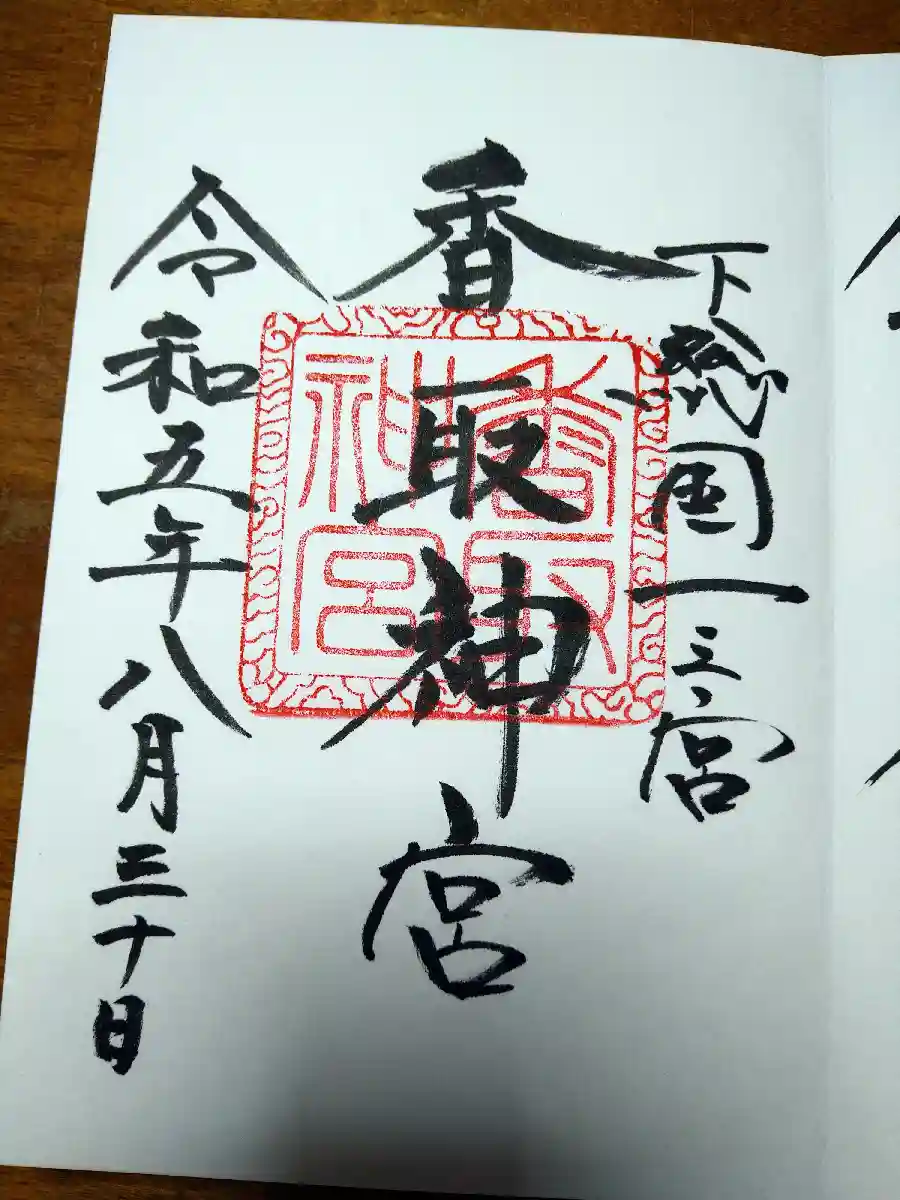 下総国一之宮
香取神宮
香取神宮
令和五年八月三十日